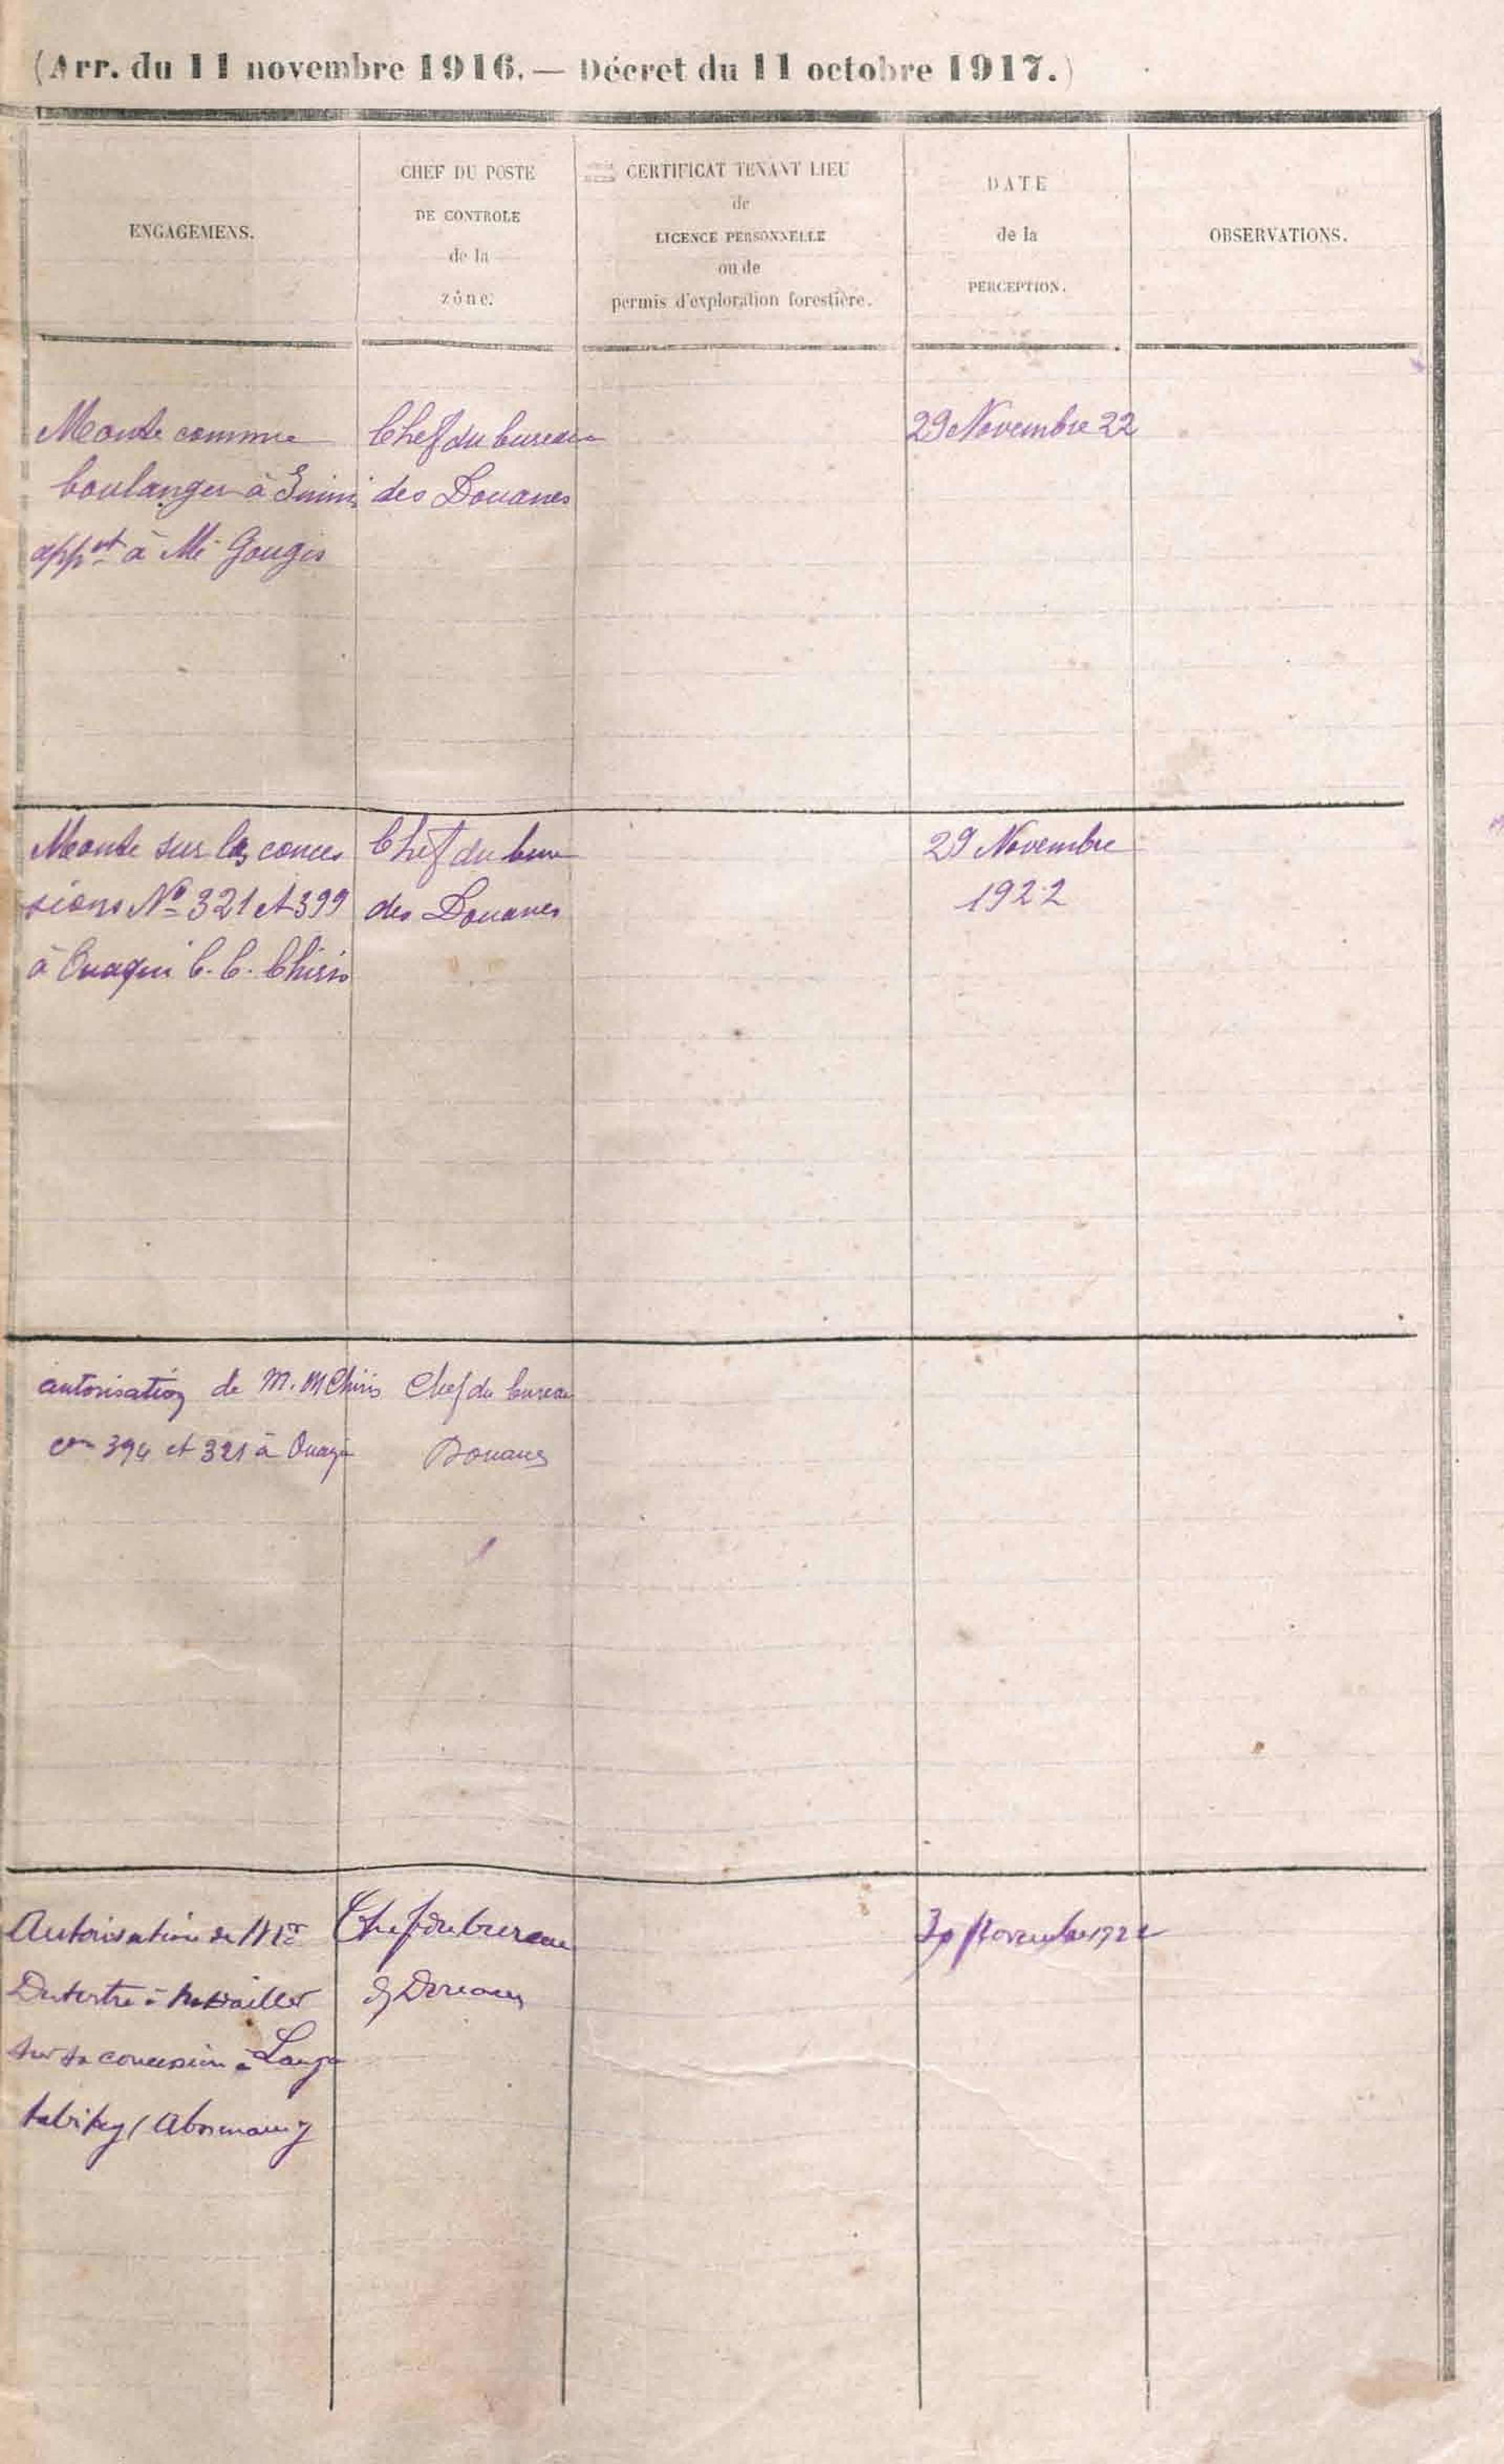 (Arr. du 11 novembre 1916. — Décret du 11 octobre 1917.)
ENGAGEMENS.
CHEF DU POSTE
DE CONTROLE
de la
zône.
CERTIFICAT TENANT LIEU
de
LICENCE PERSONNELLE
ou de
permis d'exploration forestière.
DATE
de la
PERCEPTION.
OBSERVATIONS.
Monte comme
boulanger à Inini
appnt à Mr Gougis
Chef du bureau
des Douanes
29 Novembre 22
Monte sur les conces
sions No 321 et 399
à Ouaqui C. C. Chiris
Chef du bure
des Douanes
29 Novembre
1922
autorisation de M. M Chiris
con 394 et 321 à Ouaqui
Chef du bureau
Douanes
Autorisation de Mr
Dutertre à travailler
sur sa concession à
Chef du bureau
Douanes
30 Novembre 1922